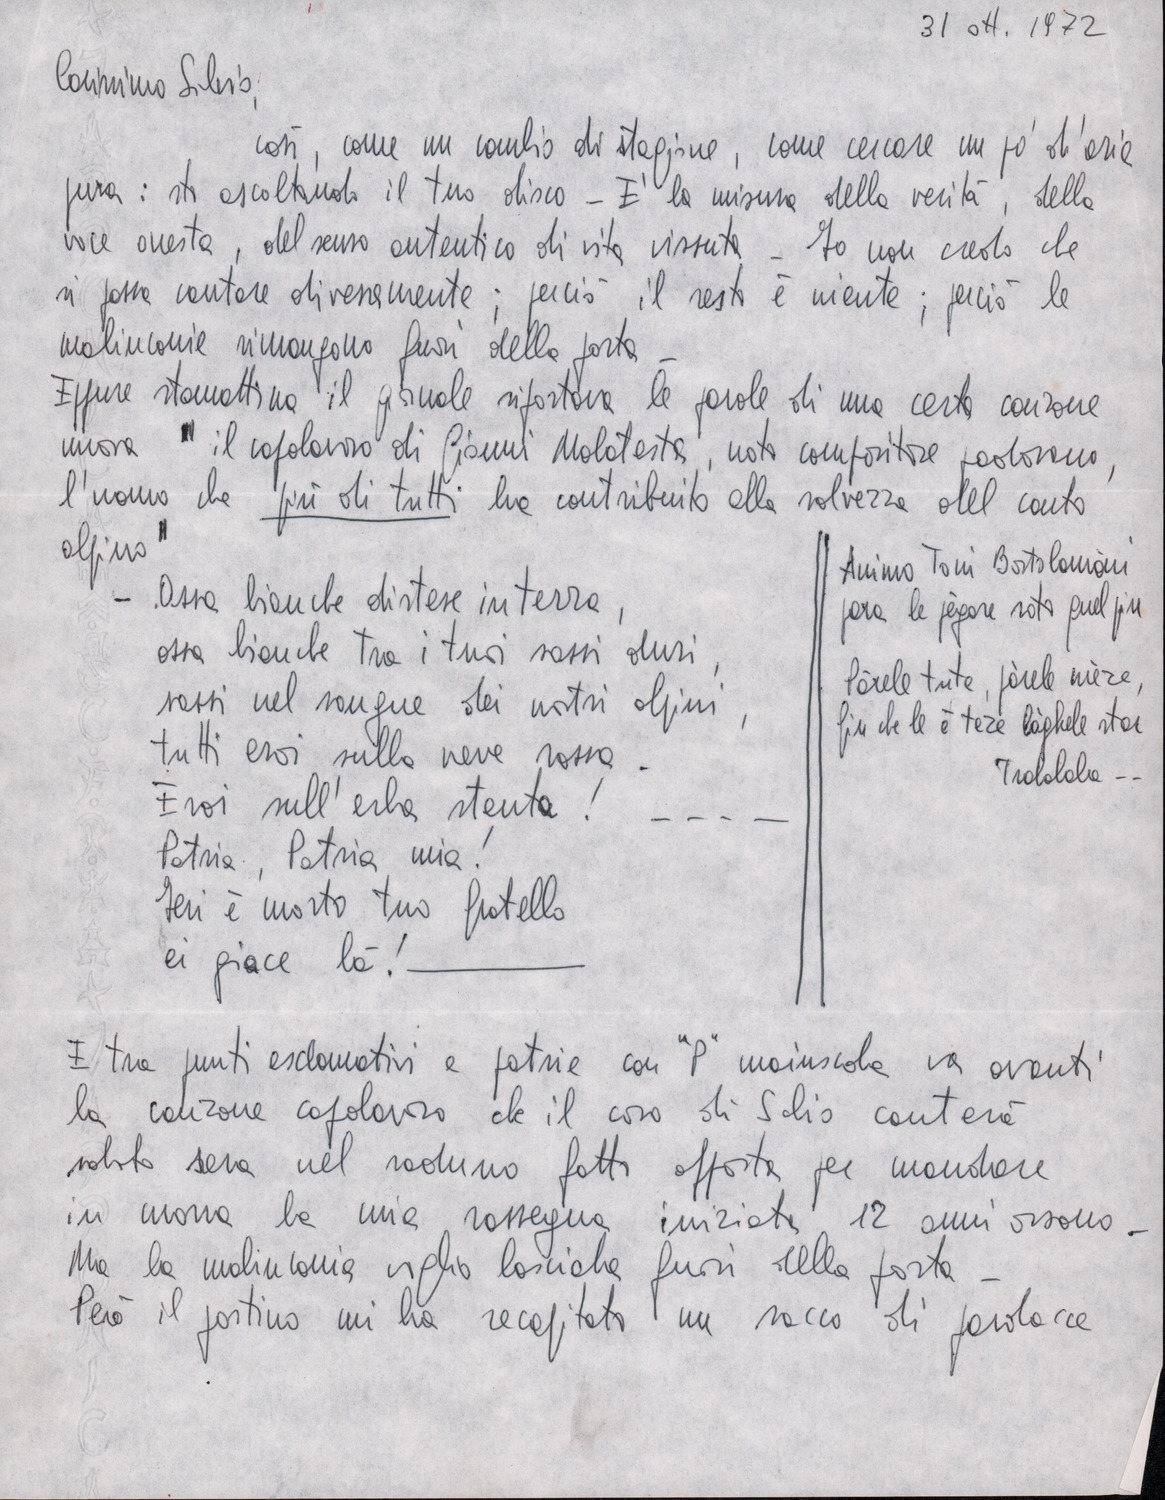 31 ott. 1972
Carissimo Silvio,
così, come un cambio di stagione, come cercare un pò d'aria
pura: sto ascoltando il tuo disco - E' la misura della verità, della
voce onesta, del senso autentico di vita vissuta - Io non credo che
si possa cantare diversamente; perciò il resto è niente; perciò le
malinconie rimangono fuori della porta -
Eppure stamattina il giornale riportava le parole di una certa canzone
nuova " il capolavoro di Gianni Malatesta, noto compositore padovano,
l'uomo che più di tutti ha contribuito alla salvezza del canto
alpino"
- Ossa bianche distese in terra,
ossa bianche tra i tuoi sassi duri,
sassi nel sangue dei nostri alpini,
tutti eroi sulla neve rossa -
Eroi sull'erba stenta! - - - -
Patria, Patria mia!
Ieri è morto tuo fratello
ei giace là!
Animo Toni Bortolamini
para le pégore soto quel pin
Pàrele tute, pàrele mèze,
fin che le è teze làghele star
Tralalala --
E tra punti esclamativi e patrie con "P" maiuscola va avanti
la canzone capolavoro che il coro di Schio canterà
sabato sera nel raduno fatto apposta per mandare
in mona la mia rassegna iniziata 12 anni orsono -
Ma la malinconia voglio lasciarla fuori della porta -
Però il postino mi ha recapitato un sacco di parolacce